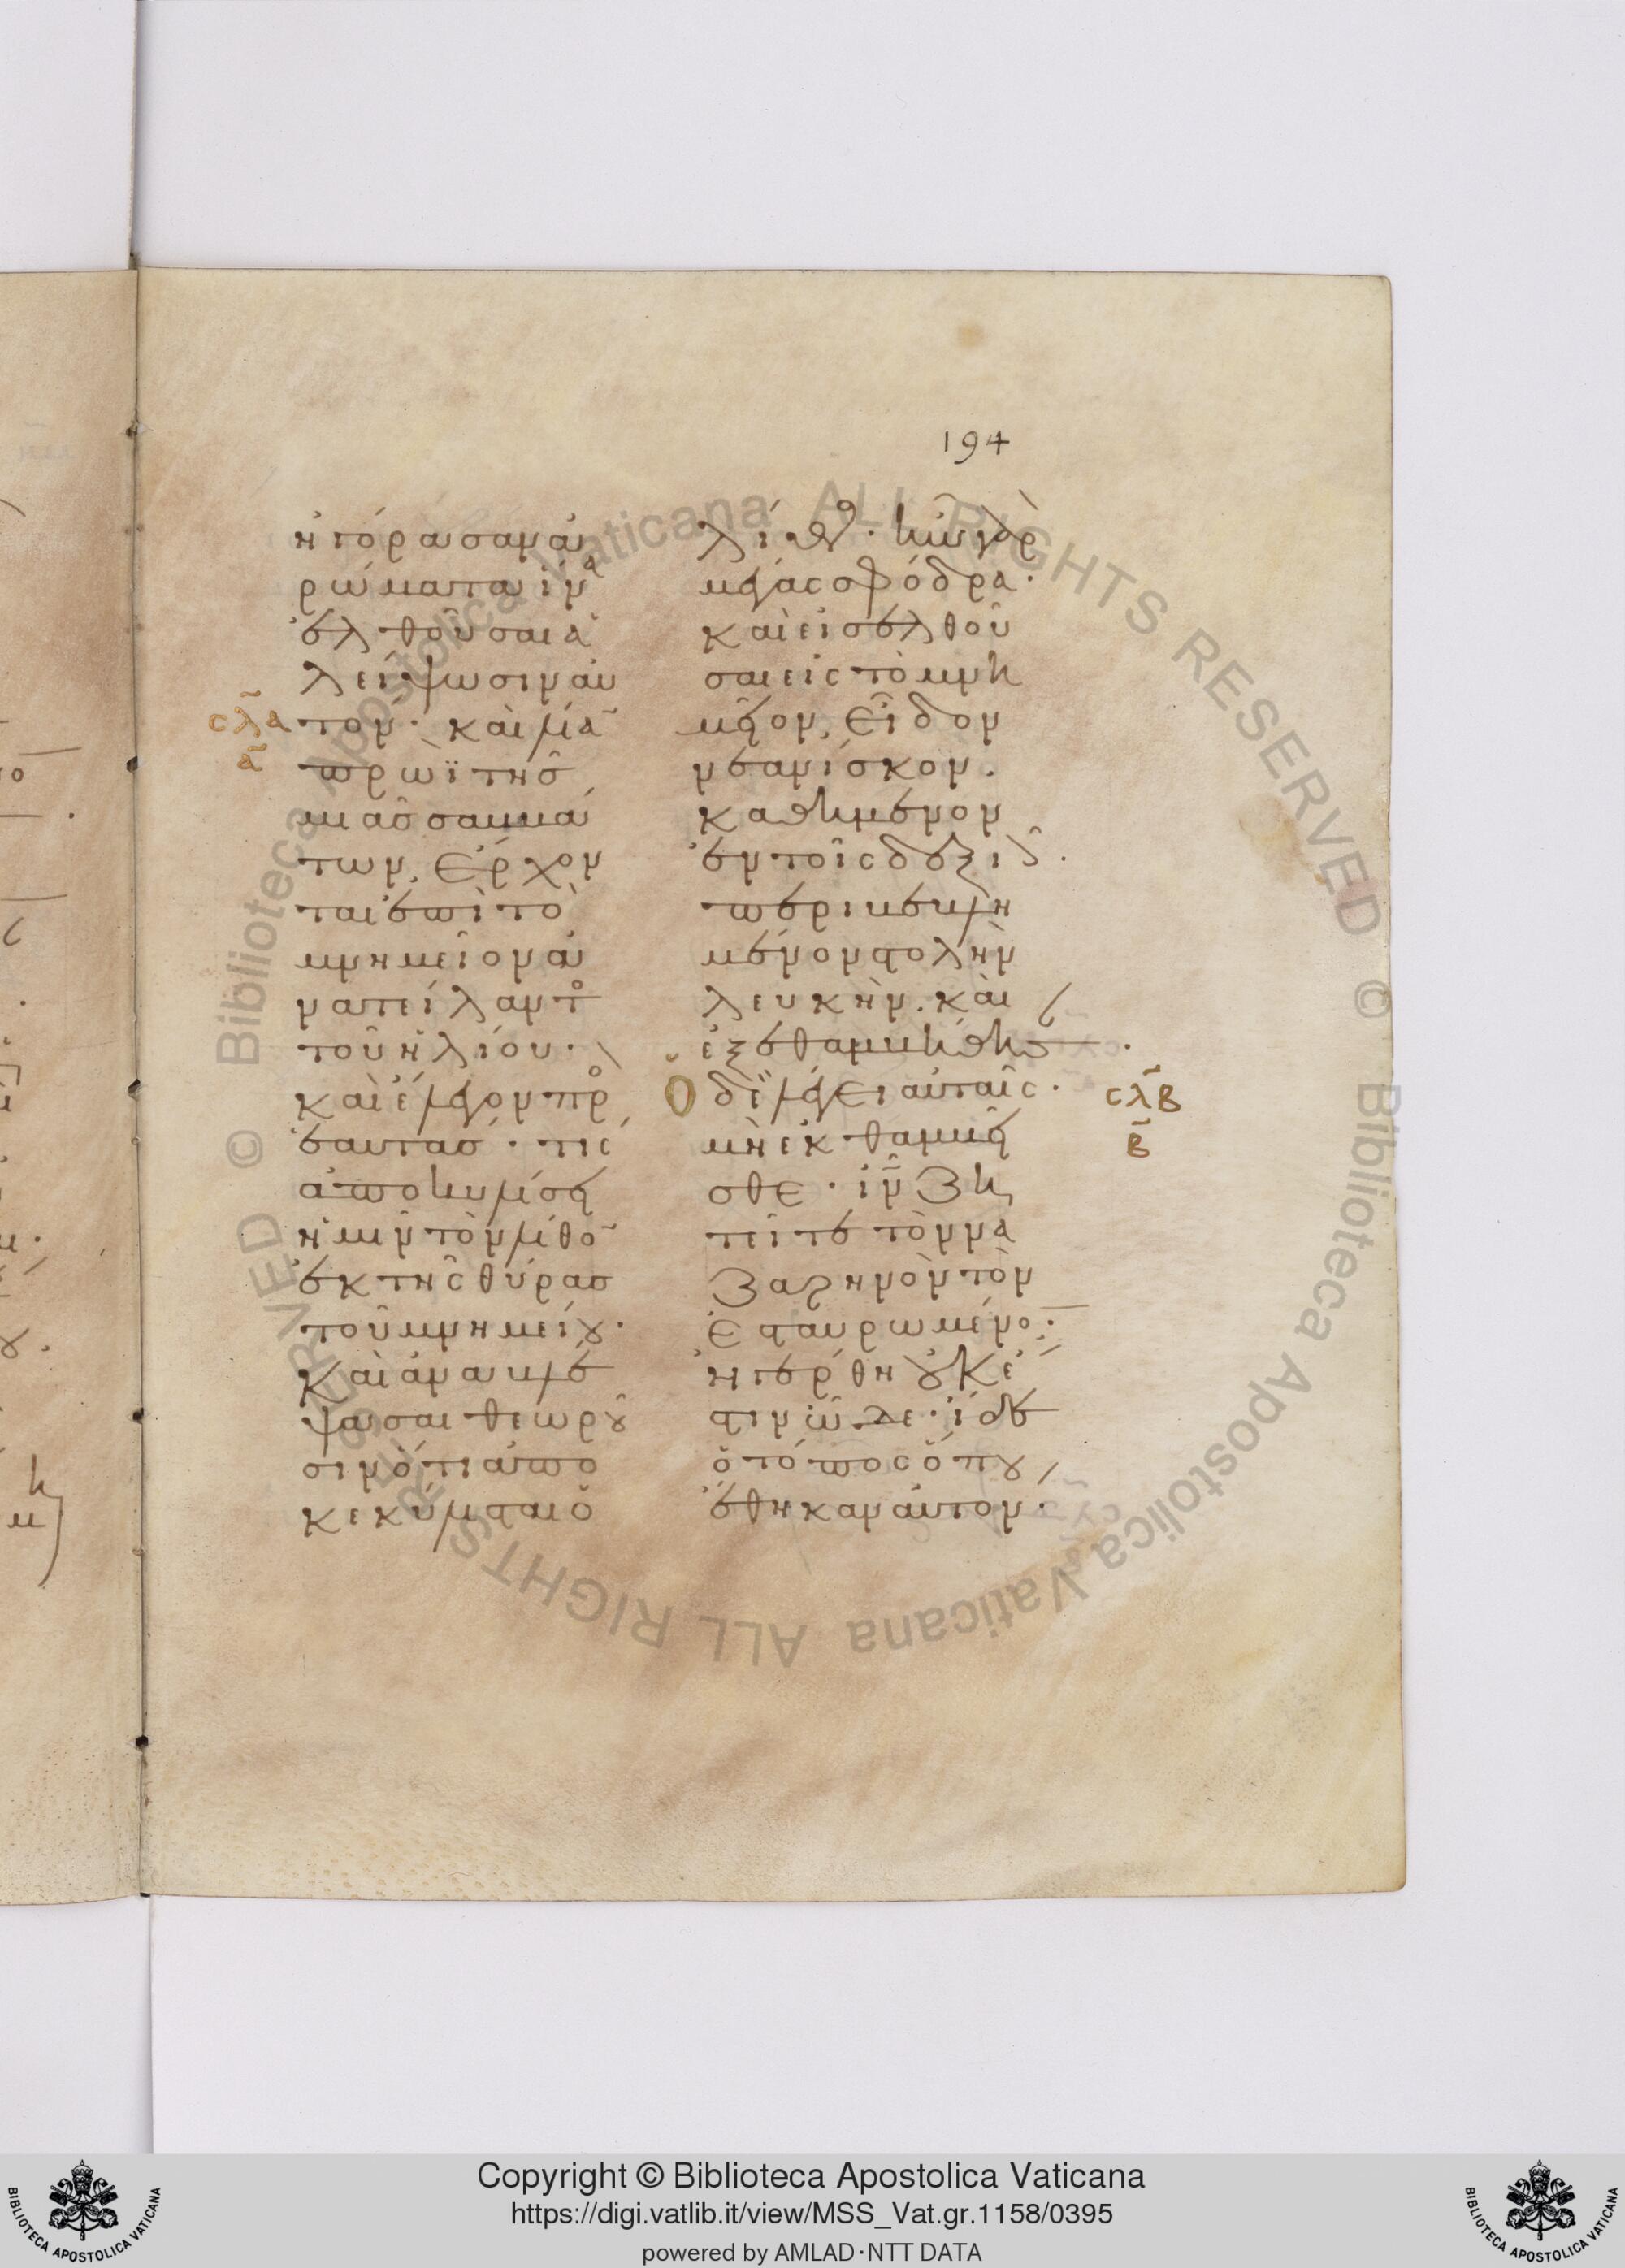 194
ἠγόρασαν ἀ
ρώματα ἵνα
ἐλθοῦσαι ἀ
λείψωσιν αὐ
σλα τόν· καὶ λίαν
α πρωῒ τῆς
μιᾶς σαββά
των, ἔρχον
ται ἐπὶ τὸ
μνημεῖον ἀ
νατείλαντο
τοῦ ἡλίου·
καὶ ἔλεγον πρὸ
ἑαυτάς· τίς
ἀποκυλίσει
ἡμῖν τὸν λίθον
ἐκ τῆς θύρας
τοῦ μνημείου·
καὶ ἀναβλέ
ψασαι θεωροῦ
σιν ὅτι ἀπο
κεκύλισται ὁ
λίθος· ἦν γὰρ
μέγας σφόδρα·
καὶ εἰσελθοῦ
σαι εἰς τὸ μνη
μεῖον, εἶδον
νεανίσκον.
καθήμενον
ἐν τοῖς δεξιοῖς.
περιβεβλη
μένον στολὴν
λευκήν. καὶ
ἐξεθαμβήθησαν.
ὁ δὲ λέγει αὐταῖς· σλβ
μὴ ἐκθαμβεῖ β
σθε· ἰν ζη
τεῖτε τὸν να
ζαρηνὸν τὸν
ἐσταυρωμένον·
ἠγέρθη οὐκ ἔ
στιν ὧδε· ἴδε
ὁ τόπος ὅπου
ἔθηκαν αὐτόν·
Copyright © Biblioteca Apostolica Vaticana
https://digi.vatlib.it/view/MSS_Vat.gr.1158/0395
powered by AMLAD·NTT DATA
BIBLIOTECA APOSTOLICA VATICANA
BIBLIOTECA APOSTOLICA VATICANA
© Biblioteca Apostolica Vaticana ALL RIGHTS RESERVED © Biblioteca Apostolica Vaticana ALL RIGHTS RESERVED